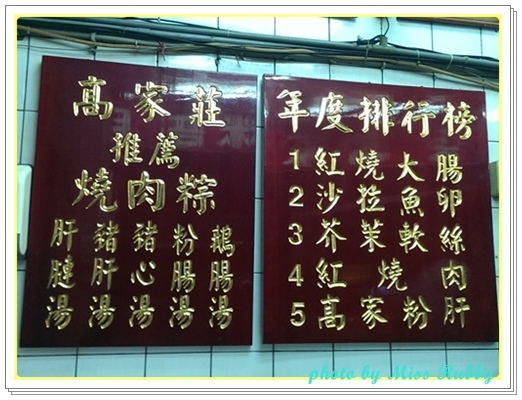 高家莊
推薦
燒肉粽
肝湯
豬肝湯
豬心湯
粉腸湯
鵝腸湯
年度排行榜
1 紅燒大腸
2 沙拉魚卵
3 芥茉軟絲
4 紅燒肉
5 高家粉肝
photo by Miss Rubby